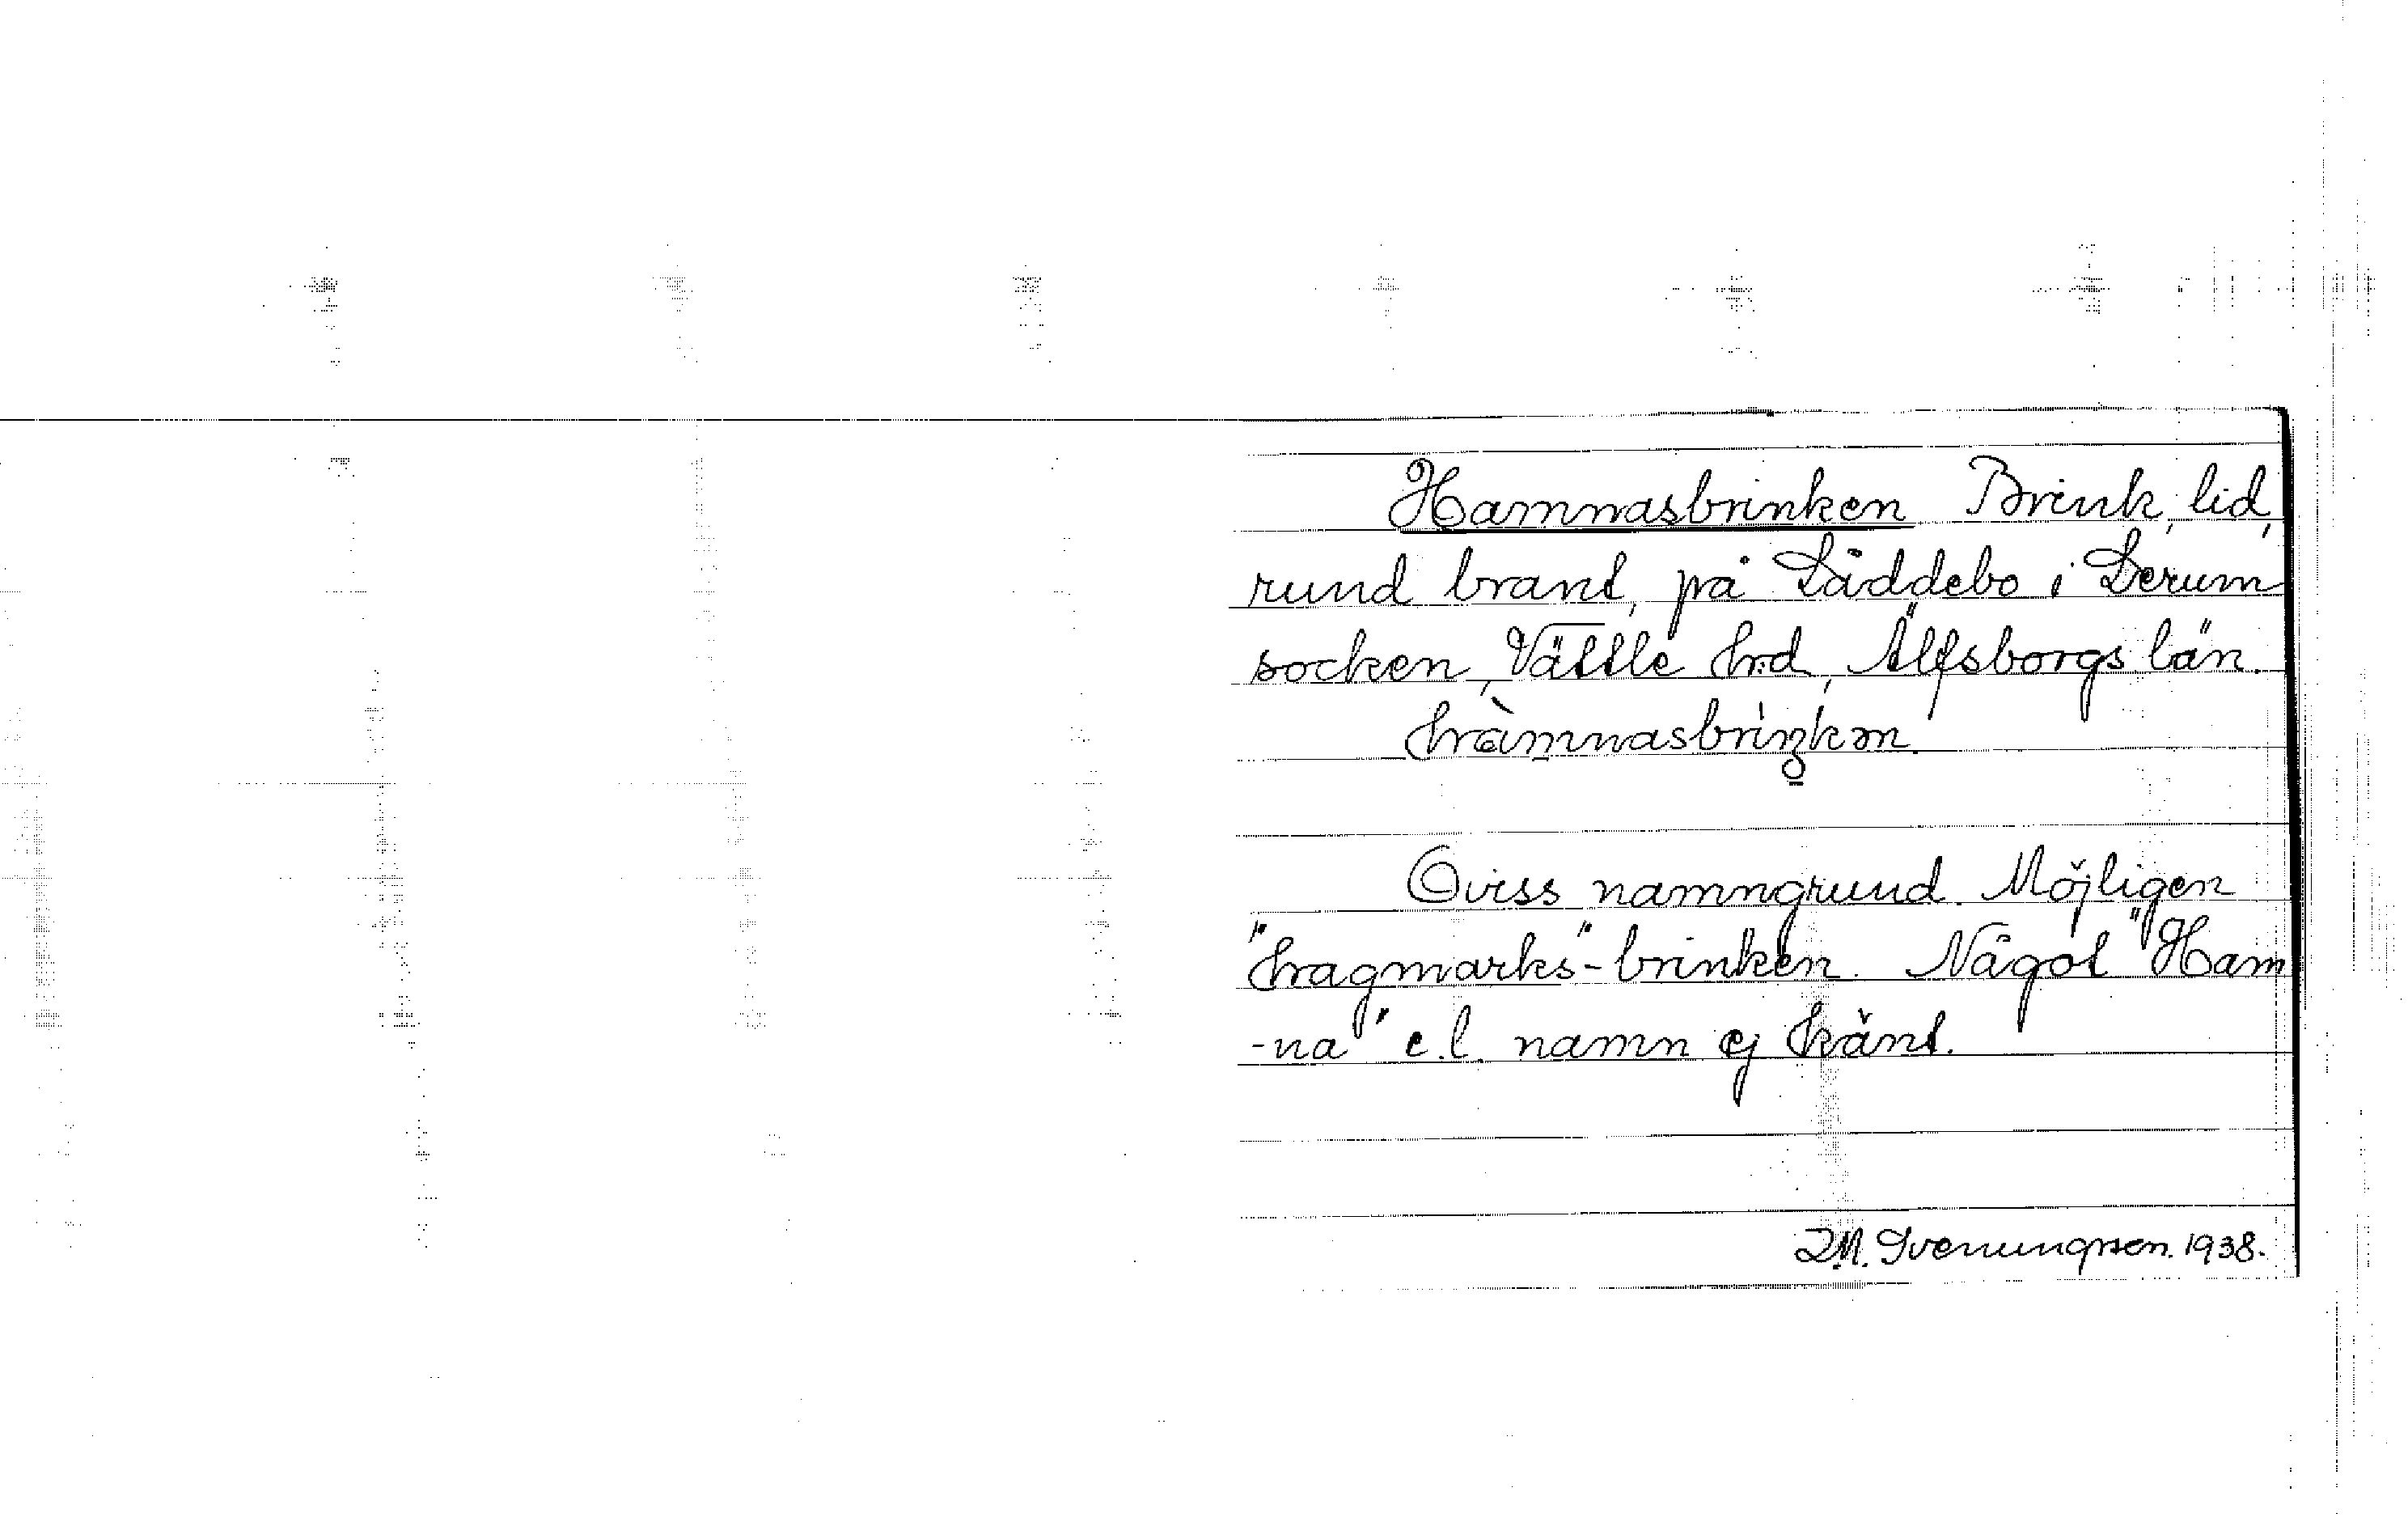 Hamnasbrinken Brink, lid,
rund brant, på Läddebo i Lerum
socken, Vättle hrd, Älfsborgs län.
Oviss namngrund. Möjligen
"hagmarks"-brinken. Något "Ham
-na" e.l. namn ej känt.
Svenungsson. 1938.